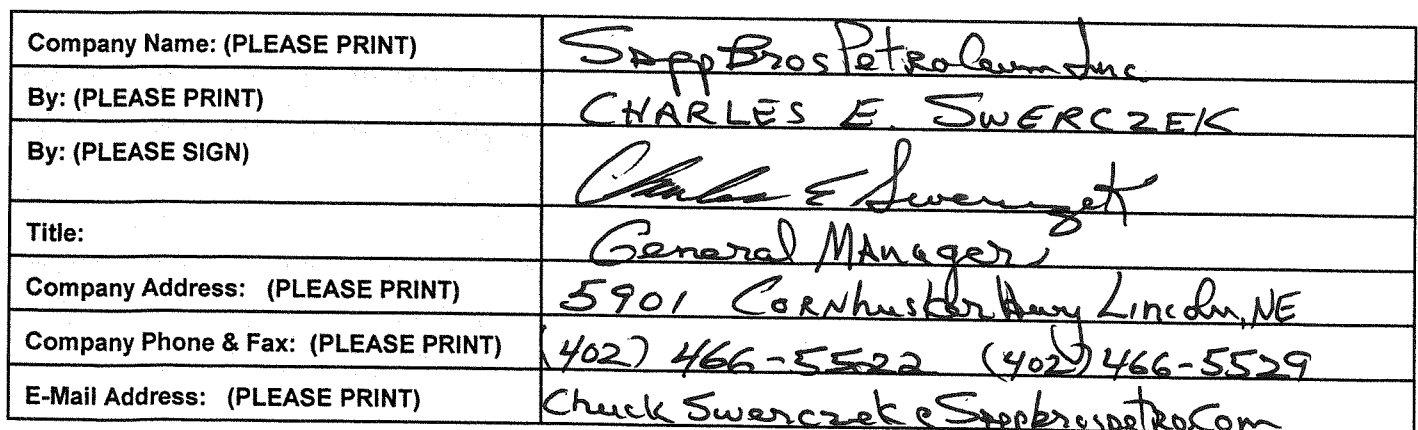 Company Name: (PLEASE PRINT) Sapp Bros Petroleum Inc
By: (PLEASE PRINT) CHARLES E. SWERCZEK
By: (PLEASE SIGN) Charles E Swerczek
Title: General Manager
Company Address: (PLEASE PRINT) 5901 Cornhusker Hwy Lincoln, NE
Company Phone & Fax: (PLEASE PRINT) (402) 466-5522 (402) 466-5529
E-Mail Address: (PLEASE PRINT) Chuck Swerczek@Sappbrospetro.Com